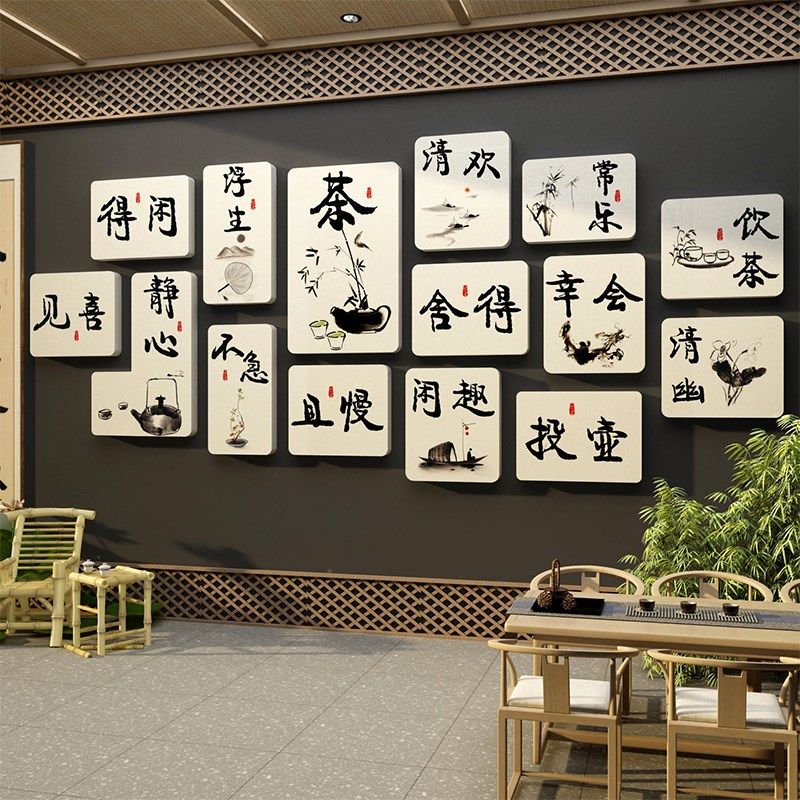 得闲
浮生
茶
清欢
常乐
饮茶
见喜
静心
不急
舍得
幸会
清幽
且慢
闲趣
投壶